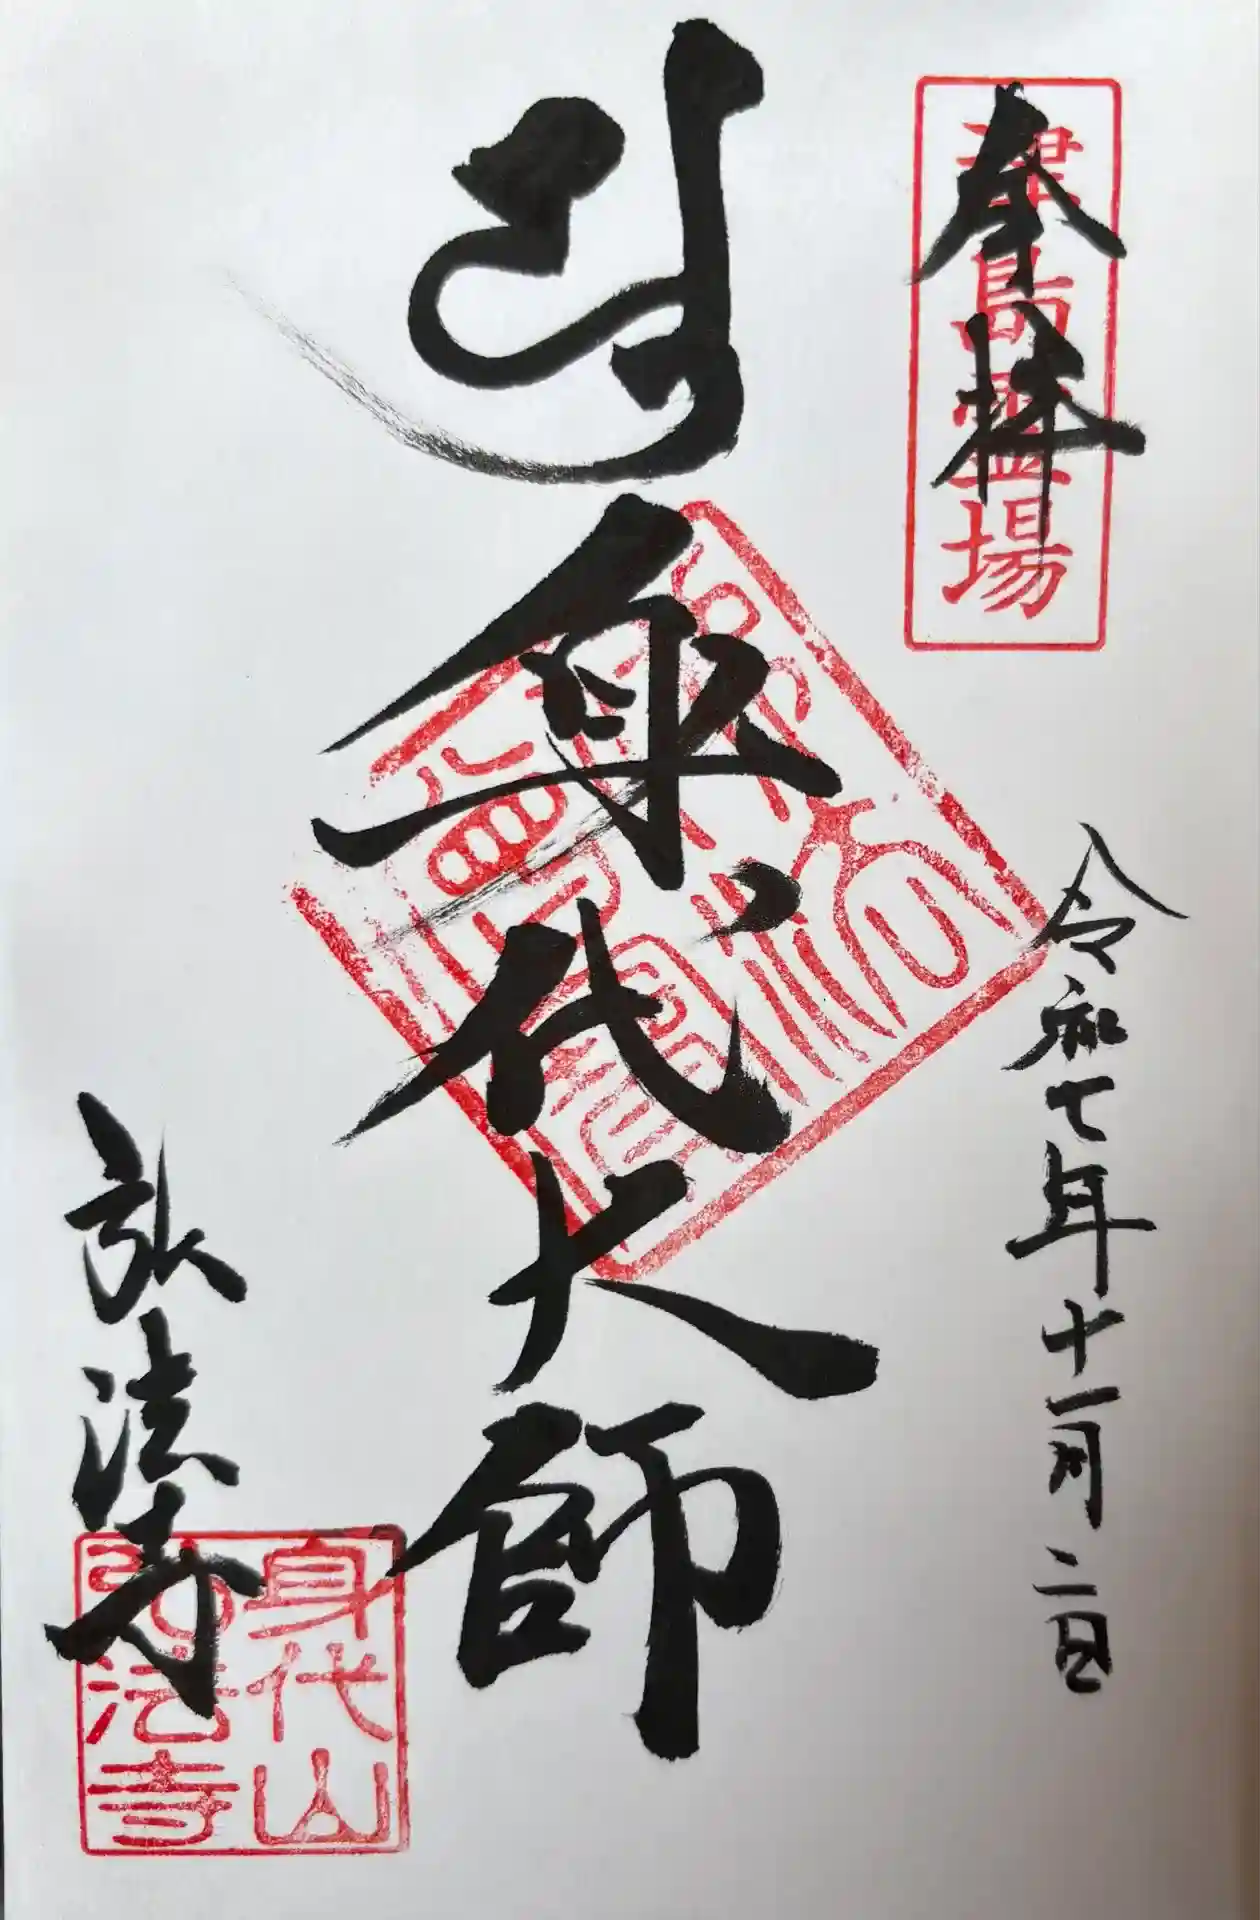 奉拝
島霊場
令和七年十一月二日
身代大師
弘法寺
身代山
弘法寺